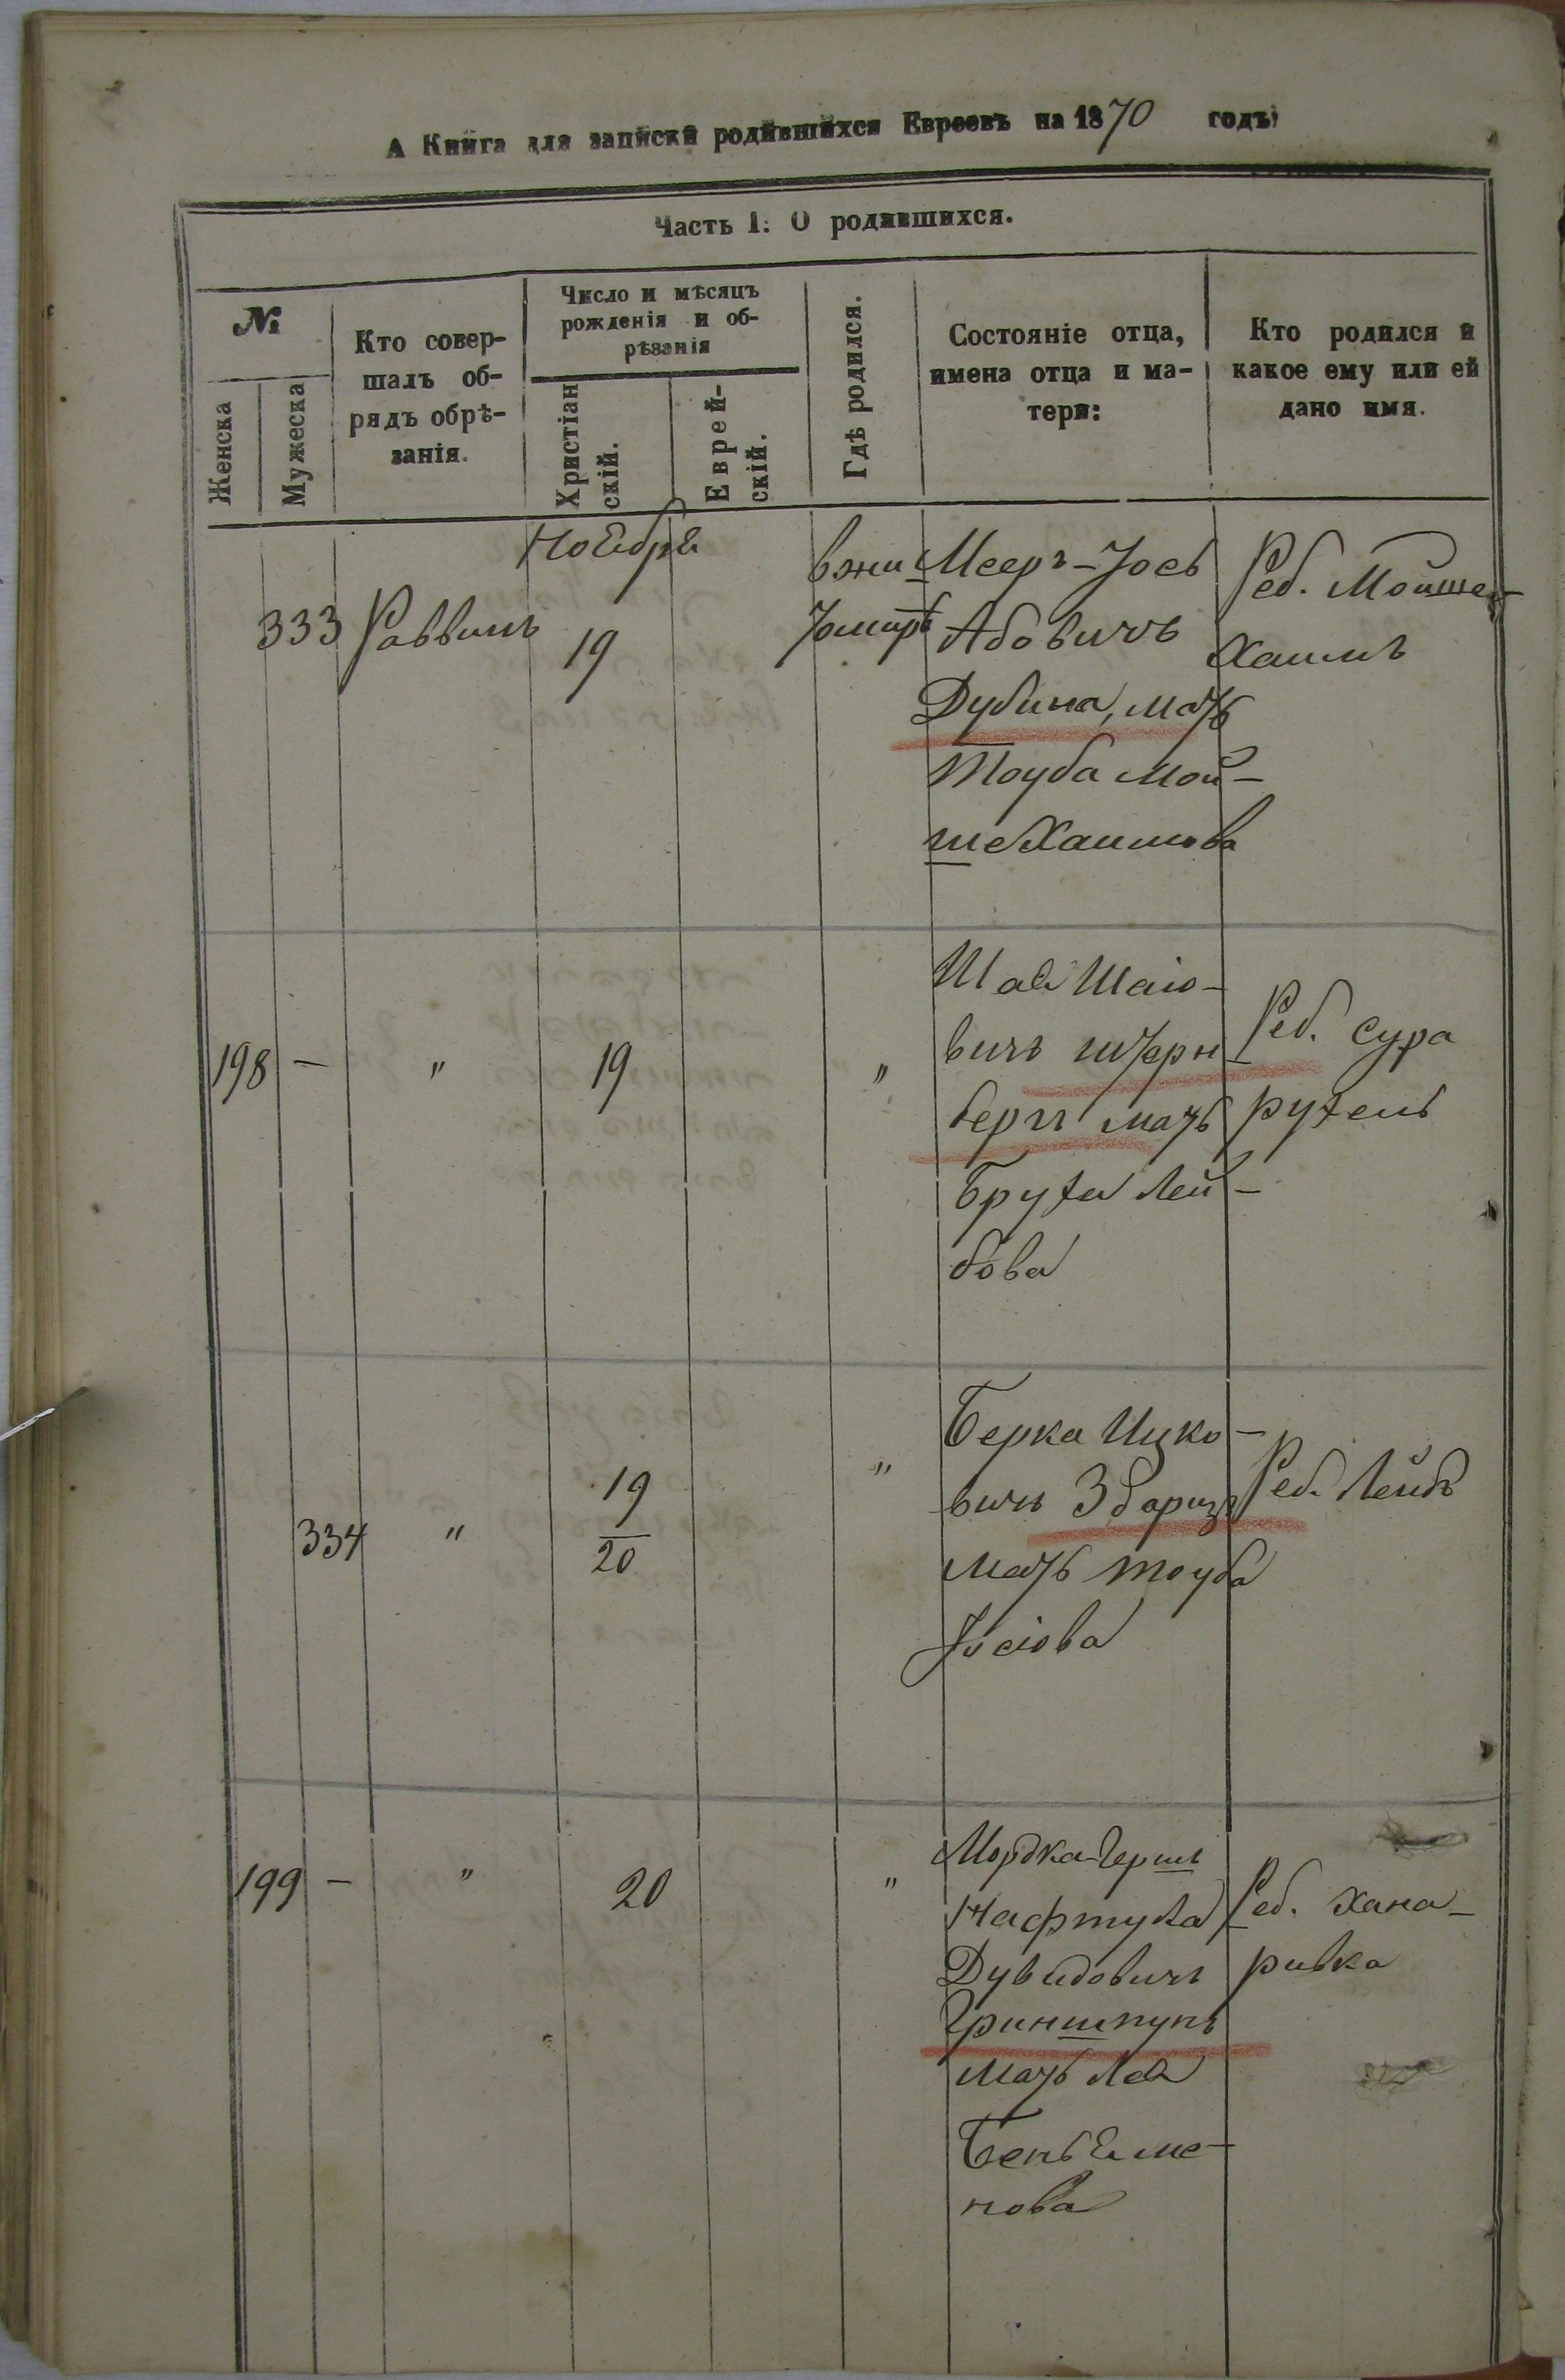 А Книга для записки родившихся Евреевъ на 1870 годъ
Часть I: О родившихся.
№
Женска
Мужеска
Кто совер-
шалъ об-
рядъ обрѣ-
занія.
Число и мѣсяцъ
рожденія и об-
рѣзанія
Христіан
скій.
Еврей-
скій.
Гдѣ родился.
Состояніе отца,
имена отца и ма-
тери:
Кто родился и
какое ему или ей
дано имя.
Ноября
333 Раввинъ 19
вжи
томирѣ
Мееръ-Іось
Абовичъ
Дубина, мать
Тоуба мой-
шеХаимова
Реб. Мойше-
Хаимъ
198 — " 19 "
Шая Шаіо-
вичъ штерн
бергъ мать
Бруха Лей-
бова
Реб. Сура
рухель
334 " 19
20
"
Берка Ицко-
вичъ Збаризъ
мать тоуба
Іосіова
Реб. Лейбъ
199 — " 20 "
Мордка-Гершъ
Нафтула
Дувидовичъ
Гриншпунъ
мать Лея
БеньЯме-
нова
Реб. Хана-
ривка